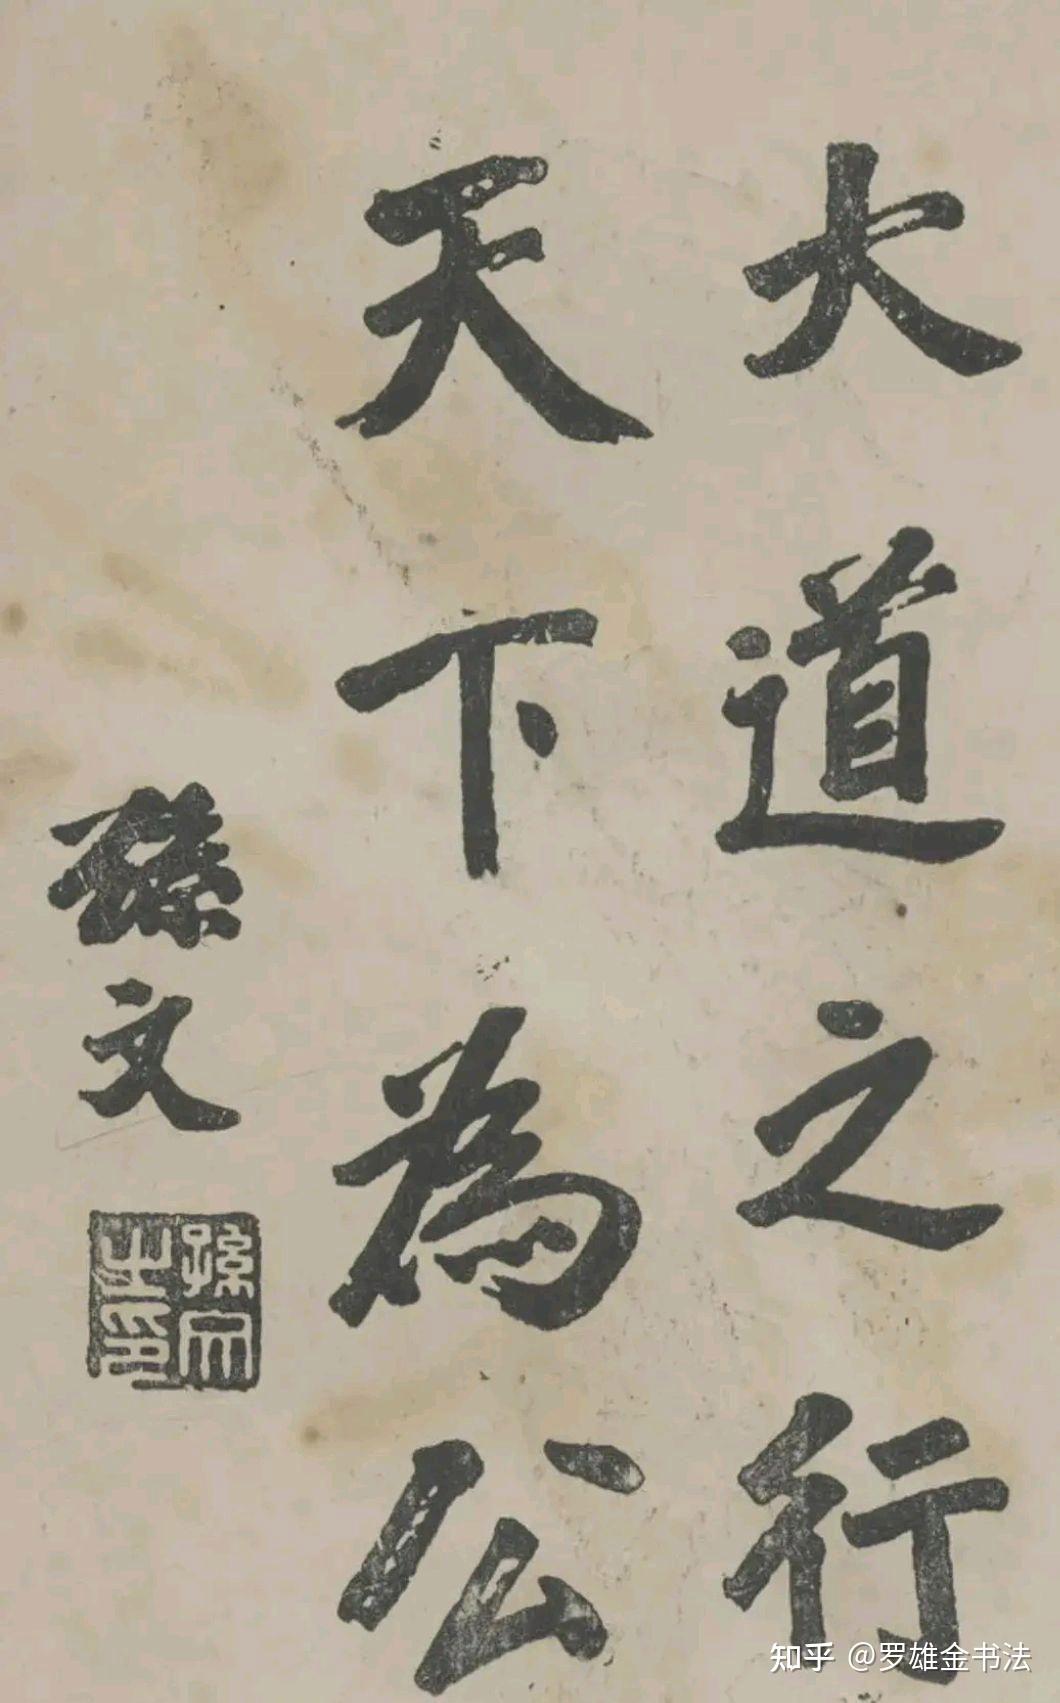 大道之行
天下為公
孫文
孫文之印
知乎 @罗雄金书法